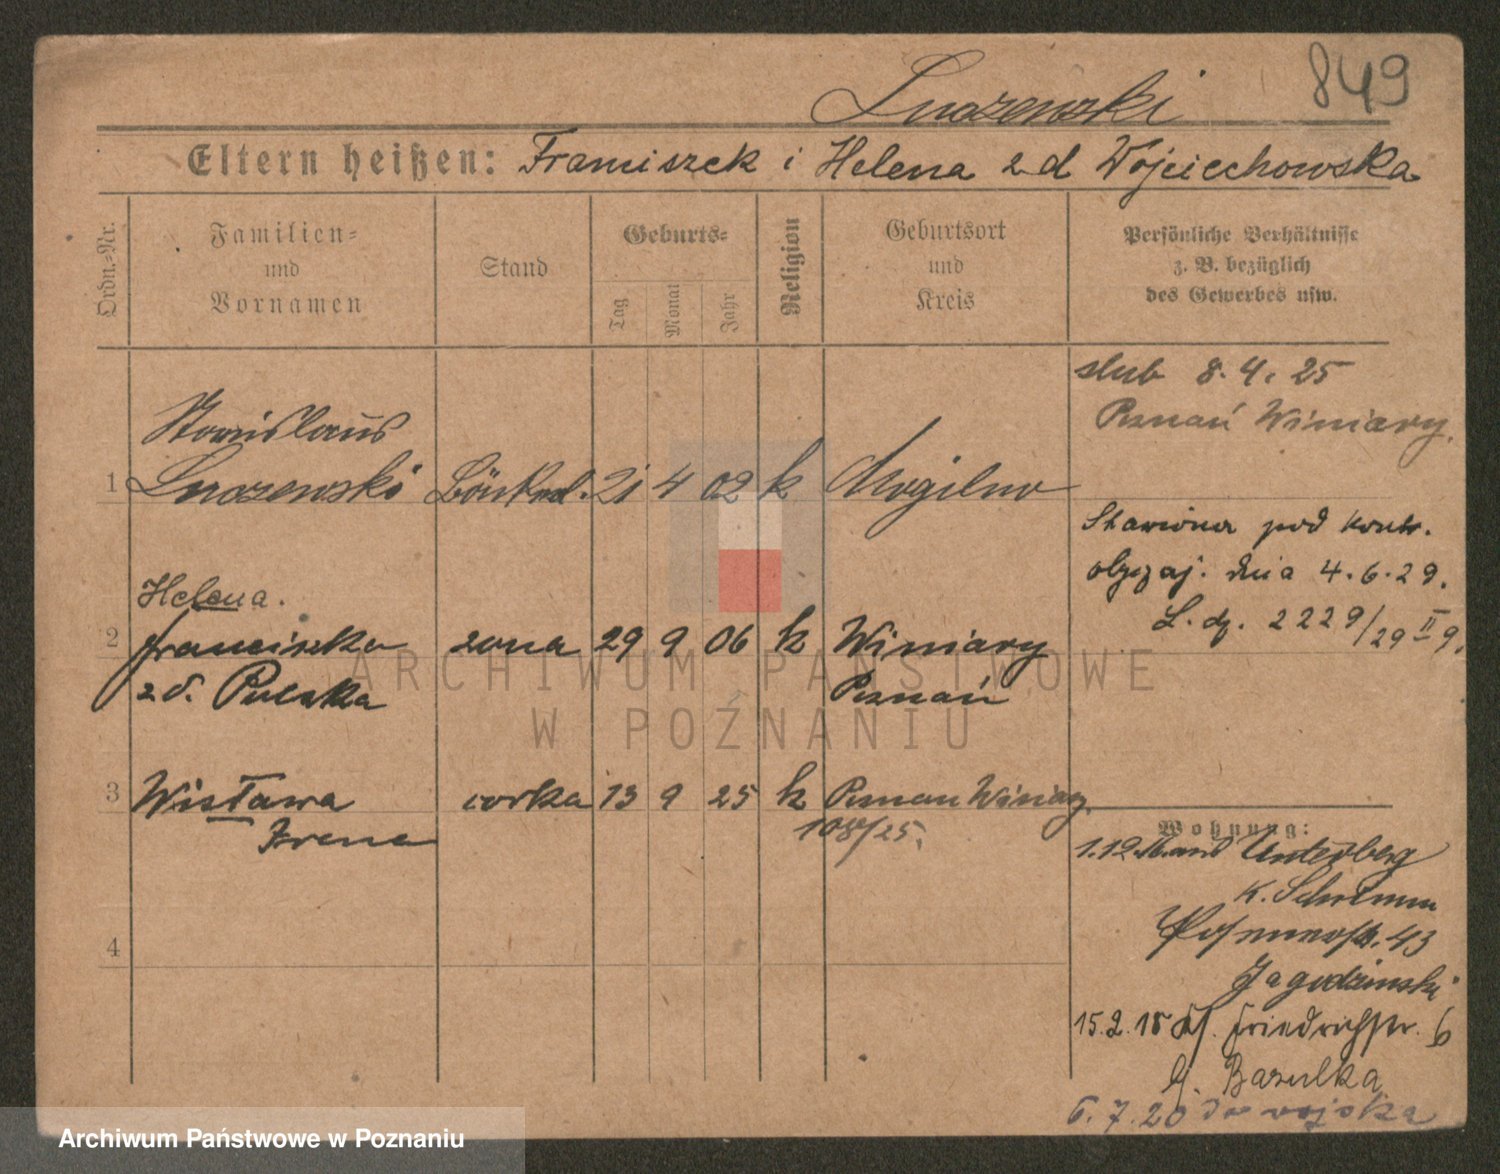 849
Luczewski
Eltern heißen: Franciszek i Helena z d Wojciechowska
Ordn.-Nr.
Familien-
und
Vornamen
Stand
Geburts-
Tag
Monat
Jahr
Religion
Geburtsort
und
Kreis
Persönliche Verhältnisse
z. B. bezüglich
des Gewerbes usw.
slub 8.4.25
Poznań Winiary.
Stanislaus
1 Luczewski 21 4 02 k Mogilno
Stawiona pod kontr.
obyczaj. dnia 4.6.29.
L. dz. 2229/29 II 9.
Helena.
2 Franciszka zona 29 9 06 k Winiary
z d. Poznań
3 Wisława corka 13 9 25 k Poznan Winiary
Irena 108/25.
4
Wohnung:
1.12. Unterberg
K. Schrimm
43
Jagodzinski
15.2.18 Friedrichstr. 6
b. Bazulka
6.7.20 do wojska
ARCHIWUM PAŃSTWOWE
W POZNANIU
Archiwum Państwowe w Poznaniu